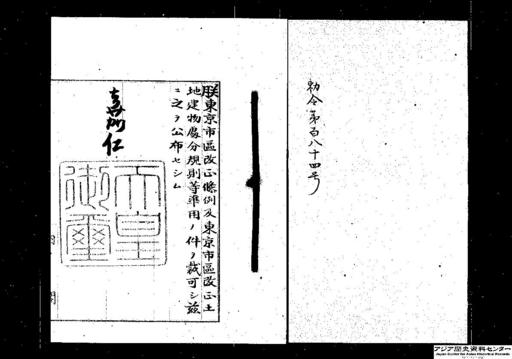 勅令第百八十四号
朕東京市區改正條例及東京市區改正土
地建物處分規則等準用ノ件ヲ裁可シ茲
ニ之ヲ公布セシム
嘉仁
天皇
御璽
アジア歴史資料センター
Japan Center for Asian Historical Records